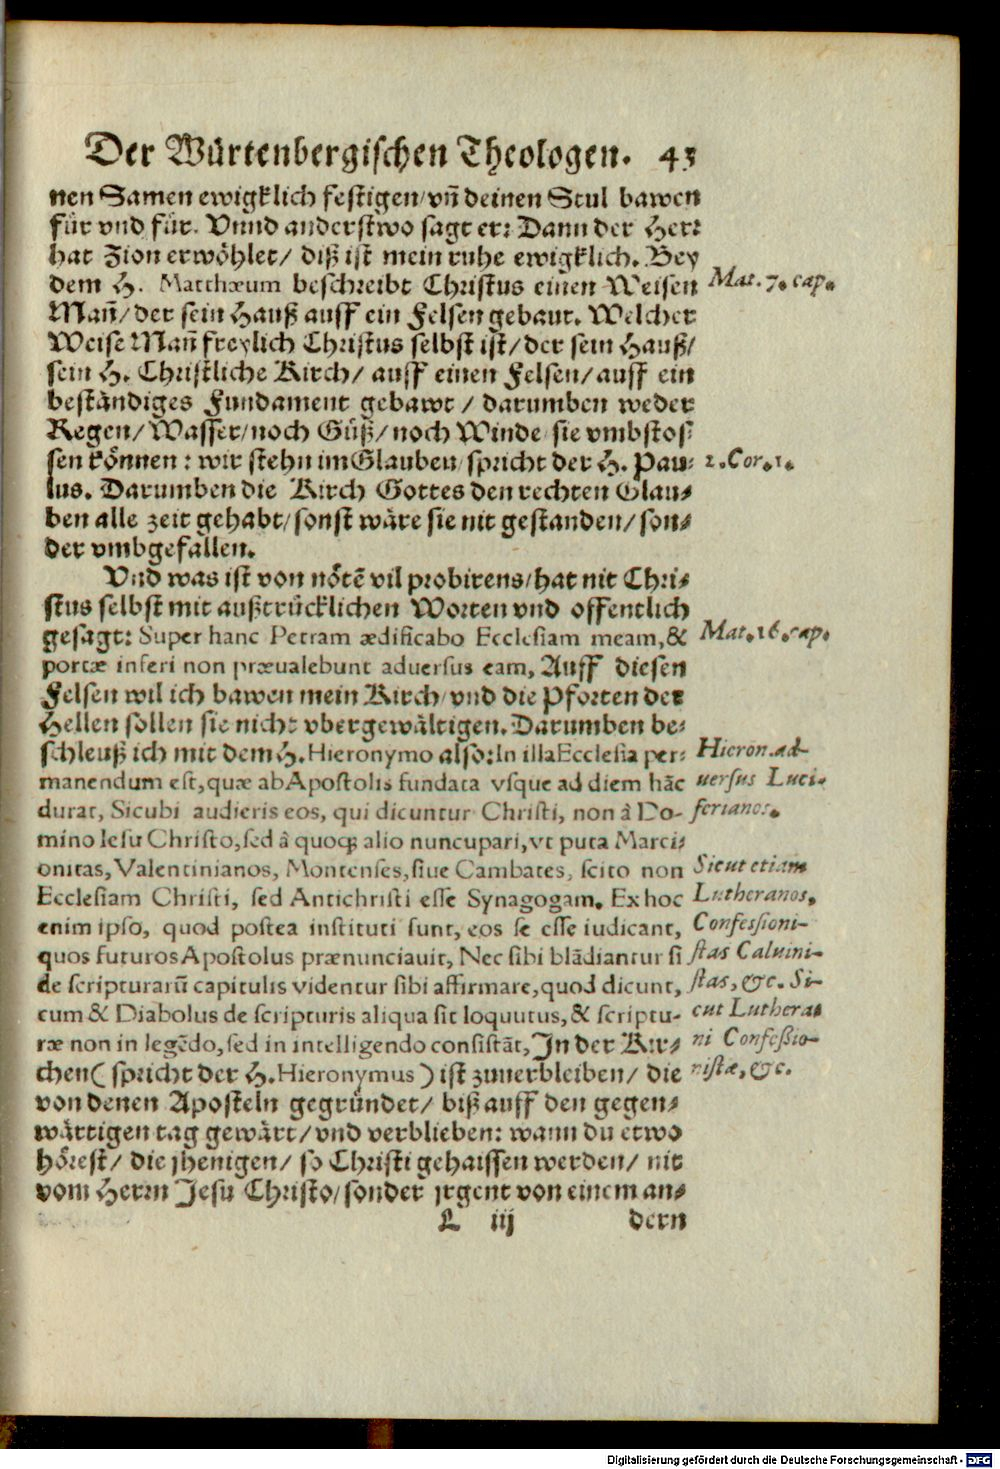 Der Würtenbergischen Theologen. 43
nen Samen ewigklich festigen/vñ deinen Stul bawen
für vnd für. Vnnd anderstwo sagt er: Dann der Herr
hat Zion erwöhlet/ diß ist mein ruhe ewigklich. Bey
dem H. Matthæum beschreibt Christus einen Weisen
Mat. 7. cap.
Mañ/ der sein Hauß auff ein Felsen gebaut. Welcher
Weise Mañ freylich Christus selbst ist/ der sein Hauß/
sein H. Christliche Kirch/ auff einen Felsen/ auff ein
beständiges Fundament gebawt / darumben weder
Regen/ Wasser/ noch Güß/ noch Winde sie vmbstos-
sen können: wir stehn im Glauben/ spricht der H. Pau-
2. Cor. 1.
lus. Darumben die Kirch Gottes den rechten Glau-
ben alle zeit gehabt/ sonst wäre sie nit gestanden/ son-
der vmbgefallen.
Vnd was ist von nötē vil probirens/ hat nit Chri-
stus selbst mit außtrücklichen Worten vnd offentlich
gesagt: Super hanc Petram ædificabo Ecclesiam meam, &
Mat. 16. cap.
portæ inferi non prævalebunt adversus eam, Auff diesen
Felsen wil ich bawen mein Kirch/ vnd die Pforten der
Hellen sollen sie nicht vbergewältigen. Darumben be-
schleuß ich mit dem H. Hieronymo also: In illa Ecclesia per-
Hieron. ad-
manendum est, quæ ab Apostolis fundata vsque ad diem hāc
uersus Luci-
durat, Sicubi audieris eos, qui dicuntur Christi, non â Do-
ferianos.
mino Iesu Christo, sed â quoq; alio nuncupari, vt puta Marci-
onitas, Valentinianos, Montenses, siue Cambates, scito non
Sicut etiam
Ecclesiam Christi, sed Antichristi esse Synagogam. Ex hoc
Lutheranos,
enim ipso, quod postea instituti sunt, eos se esse iudicant,
Confessioni-
quos futuros Apostolus prænunciauit, Nec sibi blādiantur si
stas Caluini-
de scripturarū capitulis videntur sibi affirmare, quod dicunt,
stas, &c. Si-
cum & Diabolus de scripturis aliqua sit loquutus, & scriptu-
cut Luthera-
ræ non in legēdo, sed in intelligendo consistāt, In der Kir-
ni Confeßio-
chen ( spricht der H. Hieronymus ) ist zuuerbleiben/ die
nistæ, &c.
von denen Aposteln gegründet/ biß auff den gegen-
wärtigen tag gewärt/ vnd verblieben: wann du etwo
hörest/ die jhenigen/ so Christi gehaissen werden/ nit
vom Herrn Jesu Christo/ sonder jrgent von einem an-
L iij dern
Digitalisierung gefördert durch die Deutsche Forschungsgemeinschaft - DFG